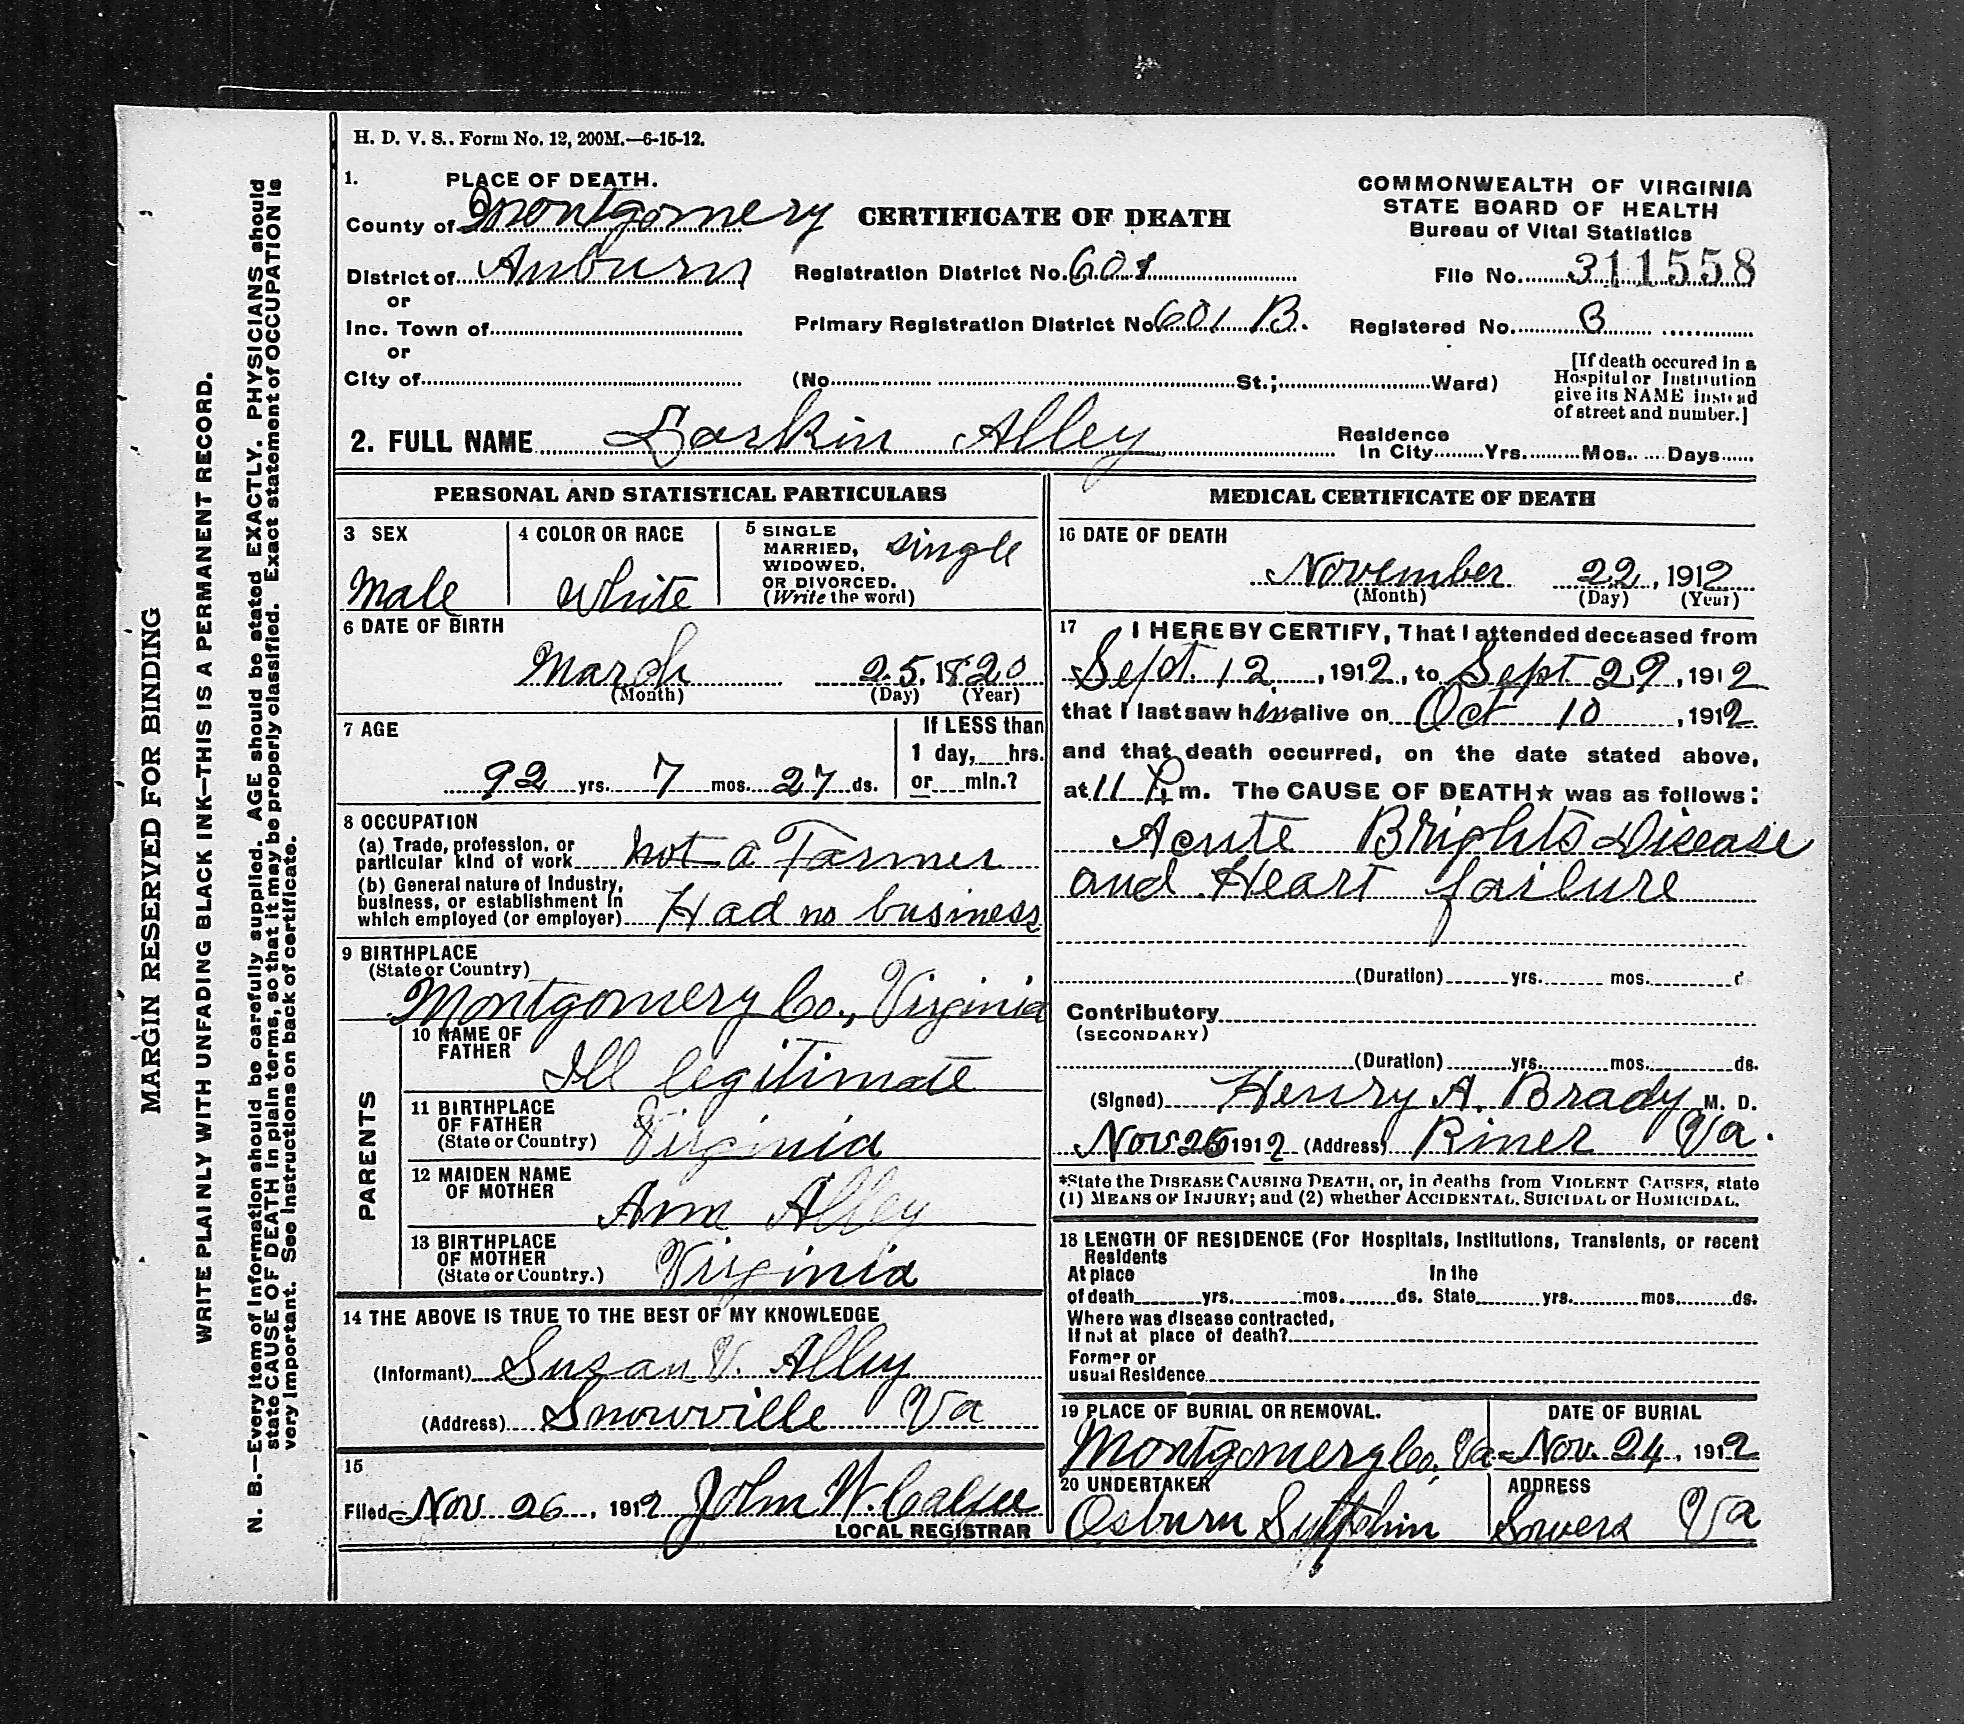 H. D. V. S.. Form No. 12, 200M.—6-15-12.
1. PLACE OF DEATH.
County of Montgomery
CERTIFICATE OF DEATH
COMMONWEALTH OF VIRGINIA
STATE BOARD OF HEALTH
Bureau of Vital Statistics
District of Auburn
or
Registration District No. 601
File No. 311558
Inc. Town of
or
Primary Registration District No. 601 B.
Registered No.
City of
(No. St.; Ward)
[If death occured in a
Hospital or Institution
give its NAME instead
of street and number.]
2. FULL NAME Larkin Alley
Residence
In City Yrs. Mos. Days
PERSONAL AND STATISTICAL PARTICULARS
3 SEX
Male
4 COLOR OR RACE
White
5 SINGLE
MARRIED,
WIDOWED,
OR DIVORCED.
(Write the word)
single
6 DATE OF BIRTH
March 25, 1820
(Month) (Day) (Year)
7 AGE
92 yrs. 7 mos. 27 ds.
If LESS than
1 day, hrs.
or min.?
8 OCCUPATION
(a) Trade, profession, or
particular kind of work not a Farmer
(b) General nature of Industry,
business, or establishment in
which employed (or employer) Had no business
9 BIRTHPLACE
(State or Country)
Montgomery Co., Virginia
PARENTS
10 NAME OF
FATHER
Ill legitimate
11 BIRTHPLACE
OF FATHER
(State or Country) Virginia
12 MAIDEN NAME
OF MOTHER
Ann Alley
13 BIRTHPLACE
OF MOTHER
(State or Country.) Virginia
14 THE ABOVE IS TRUE TO THE BEST OF MY KNOWLEDGE
(Informant) Susan V. Alley
(Address) Snowville Va
15
Filed Nov 26, 1912 John W.
LOCAL REGISTRAR
MEDICAL CERTIFICATE OF DEATH
16 DATE OF DEATH
November 22, 1912
(Month) (Day) (Year)
17 I HEREBY CERTIFY, That I attended deceased from
Sept. 12, 1912, to Sept 29, 1912
that I last saw him alive on Oct 10, 1912
and that death occurred, on the date stated above,
at 11 P. m. The CAUSE OF DEATH★ was as follows:
Acute Brights Disease
and Heart failure
(Duration) yrs. mos. d
Contributory
(SECONDARY)
(Duration) yrs. mos. ds.
(Signed) Henry A. Brady M. D.
Nov 25 1912 (Address) Riner Va.
*State the DISEASE CAUSING DEATH, or, in deaths from VIOLENT CAUSES, state
(1) MEANS OF INJURY; and (2) whether ACCIDENTAL, SUICIDAL or HOMICIDAL.
18 LENGTH OF RESIDENCE (For Hospitals, Institutions, Transients, or recent
Residents
At place In the
of death yrs. mos. ds. State yrs. mos. ds.
Where was disease contracted,
If not at place of death?
Former or
usual Residence
19 PLACE OF BURIAL OR REMOVAL.
Montgomery Co. Va
DATE OF BURIAL
Nov. 24, 1912
20 UNDERTAKER
Osburn Sutphin
ADDRESS
Sowers Va
MARGIN RESERVED FOR BINDING
WRITE PLAINLY WITH UNFADING BLACK INK—THIS IS A PERMANENT RECORD.
N. B.—Every item of information should be carefully supplied. AGE should be stated EXACTLY. PHYSICIANS should
state CAUSE OF DEATH in plain terms, so that it may be properly classified. Exact statement of OCCUPATION is
very important. See instructions on back of certificate.